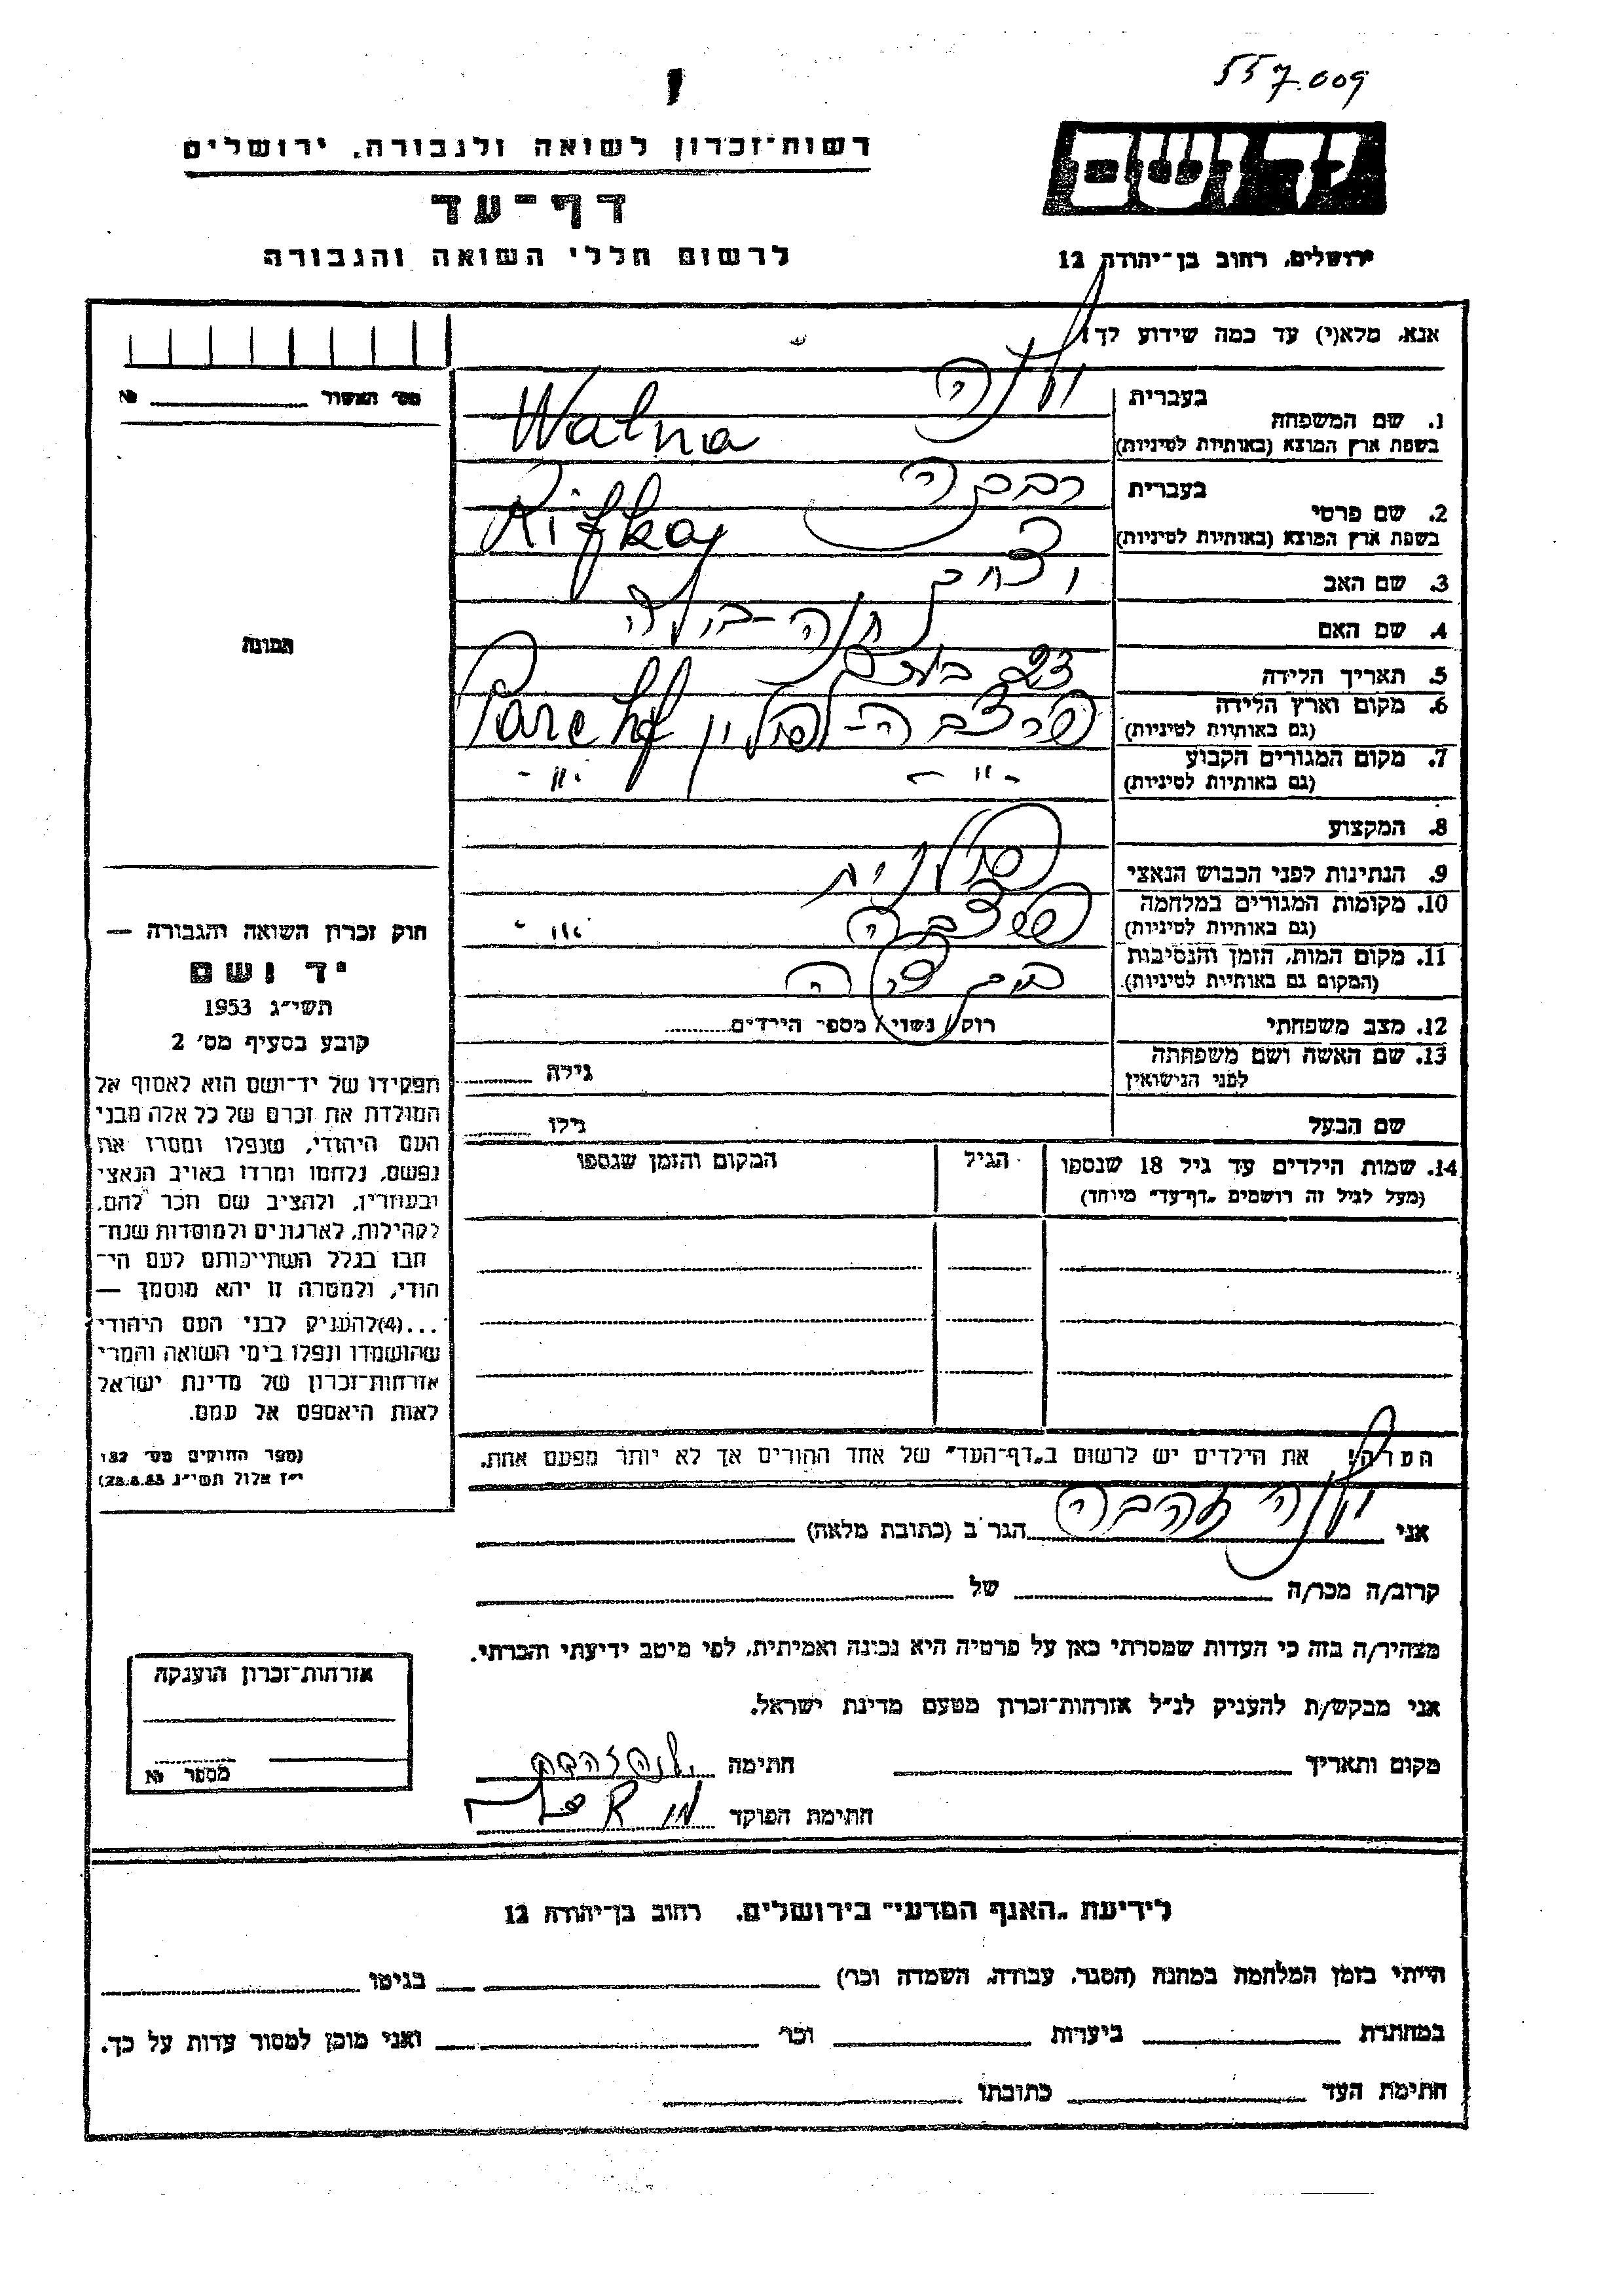 557.009
רשות־זכרון לשואה ולגבורה, ירושלים
דף־עד
לרשום חללי השואה והגבורה
יד ושם
ירושלים, רחוב בן־יהודה 12
אנא, מלא(י) עד כמה שידוע לך:
מס׳ האשור № ______
1. שם המשפחה
בעברית ולנה
בשפת ארץ המוצא (באותיות לטיניות) Walna
2. שם פרטי
בעברית רבקה
בשפת ארץ המוצא (באותיות לטיניות) Rifka
3. שם האב
4. שם האם
5. תאריך הלידה 23
6. מקום וארץ הלידה
(גם באותיות לטיניות) פולין
7. מקום המגורים הקבוע
(גם באותיות לטיניות) -"- -"-
8. המקצוע
9. הנתינות לפני הכבוש הנאצי פולנית
10. מקומות המגורים במלחמה
(גם באותיות לטיניות) -"-
11. מקום המות, הזמן והנסיבות
(המקום גם באותיות לטיניות).
12. מצב משפחתי רוק/ נשוי/ מספר הילדים..........
13. שם האשה ושם משפחתה
לפני הנישואין גילה ........
שם הבעל גילו ........
14. שמות הילדים עד גיל 18 שנספו הגיל המקום והזמן שנספו
(מעל לגיל זה רושמים „דף־עד" מיוחד)
הערה: את הילדים יש לרשום ב„דף־העד" של אחד ההורים אך לא יותר מפעם אחת.
תמונה
חוק זכרון השואה והגבורה —
יד ושם
תשי״ג 1953
קובע בסעיף מס׳ 2
תפקידו של יד־ושם הוא לאסוף אל
המולדת את זכרם של כל אלה מבני
העם היהודי, שנפלו ומסרו את
נפשם, נלחמו ומרדו באויב הנאצי
ובעוזריו, ולהציב שם וזכר להם,
לקהילות, לארגונים ולמוסדות שנח־
רבו בגלל השתייכותם לעם הי־
הודי, ולמטרה זו יהא מוסמך —
...(4)להעניק לבני העם היהודי
שהושמדו ונפלו בימי השואה והמרי
אזרחות־זכרון של מדינת ישראל
לאות היאספם אל עמם.
(ספר החוקים מס׳ 132
י״ז אלול תשי״ג 28.8.53)
אני ולנה זהבה הגר ב (כתובת מלאה)
קרוב/ה מכר/ה של
מצהיר/ה בזה כי העדות שמסרתי כאן על פרטיה היא נכונה ואמיתית, לפי מיטב ידיעתי והכרתי.
אני מבקש/ת להעניק לנ״ל אזרחות־זכרון מטעם מדינת ישראל.
מקום ותאריך חתימה ולנה זהבה
חתימת הפוקד
אזרחות־זכרון הוענקה
מספר №
לידיעת „האגף המדעי" בירושלים, רחוב בן־יהודה 12
הייתי בזמן המלחמה במחנה (הסגר, עבודה, השמדה וכר) בגיטו
במחתרת ביערות וכר ואני מוכן למסור עדות על כך.
חתימת העד כתובתו